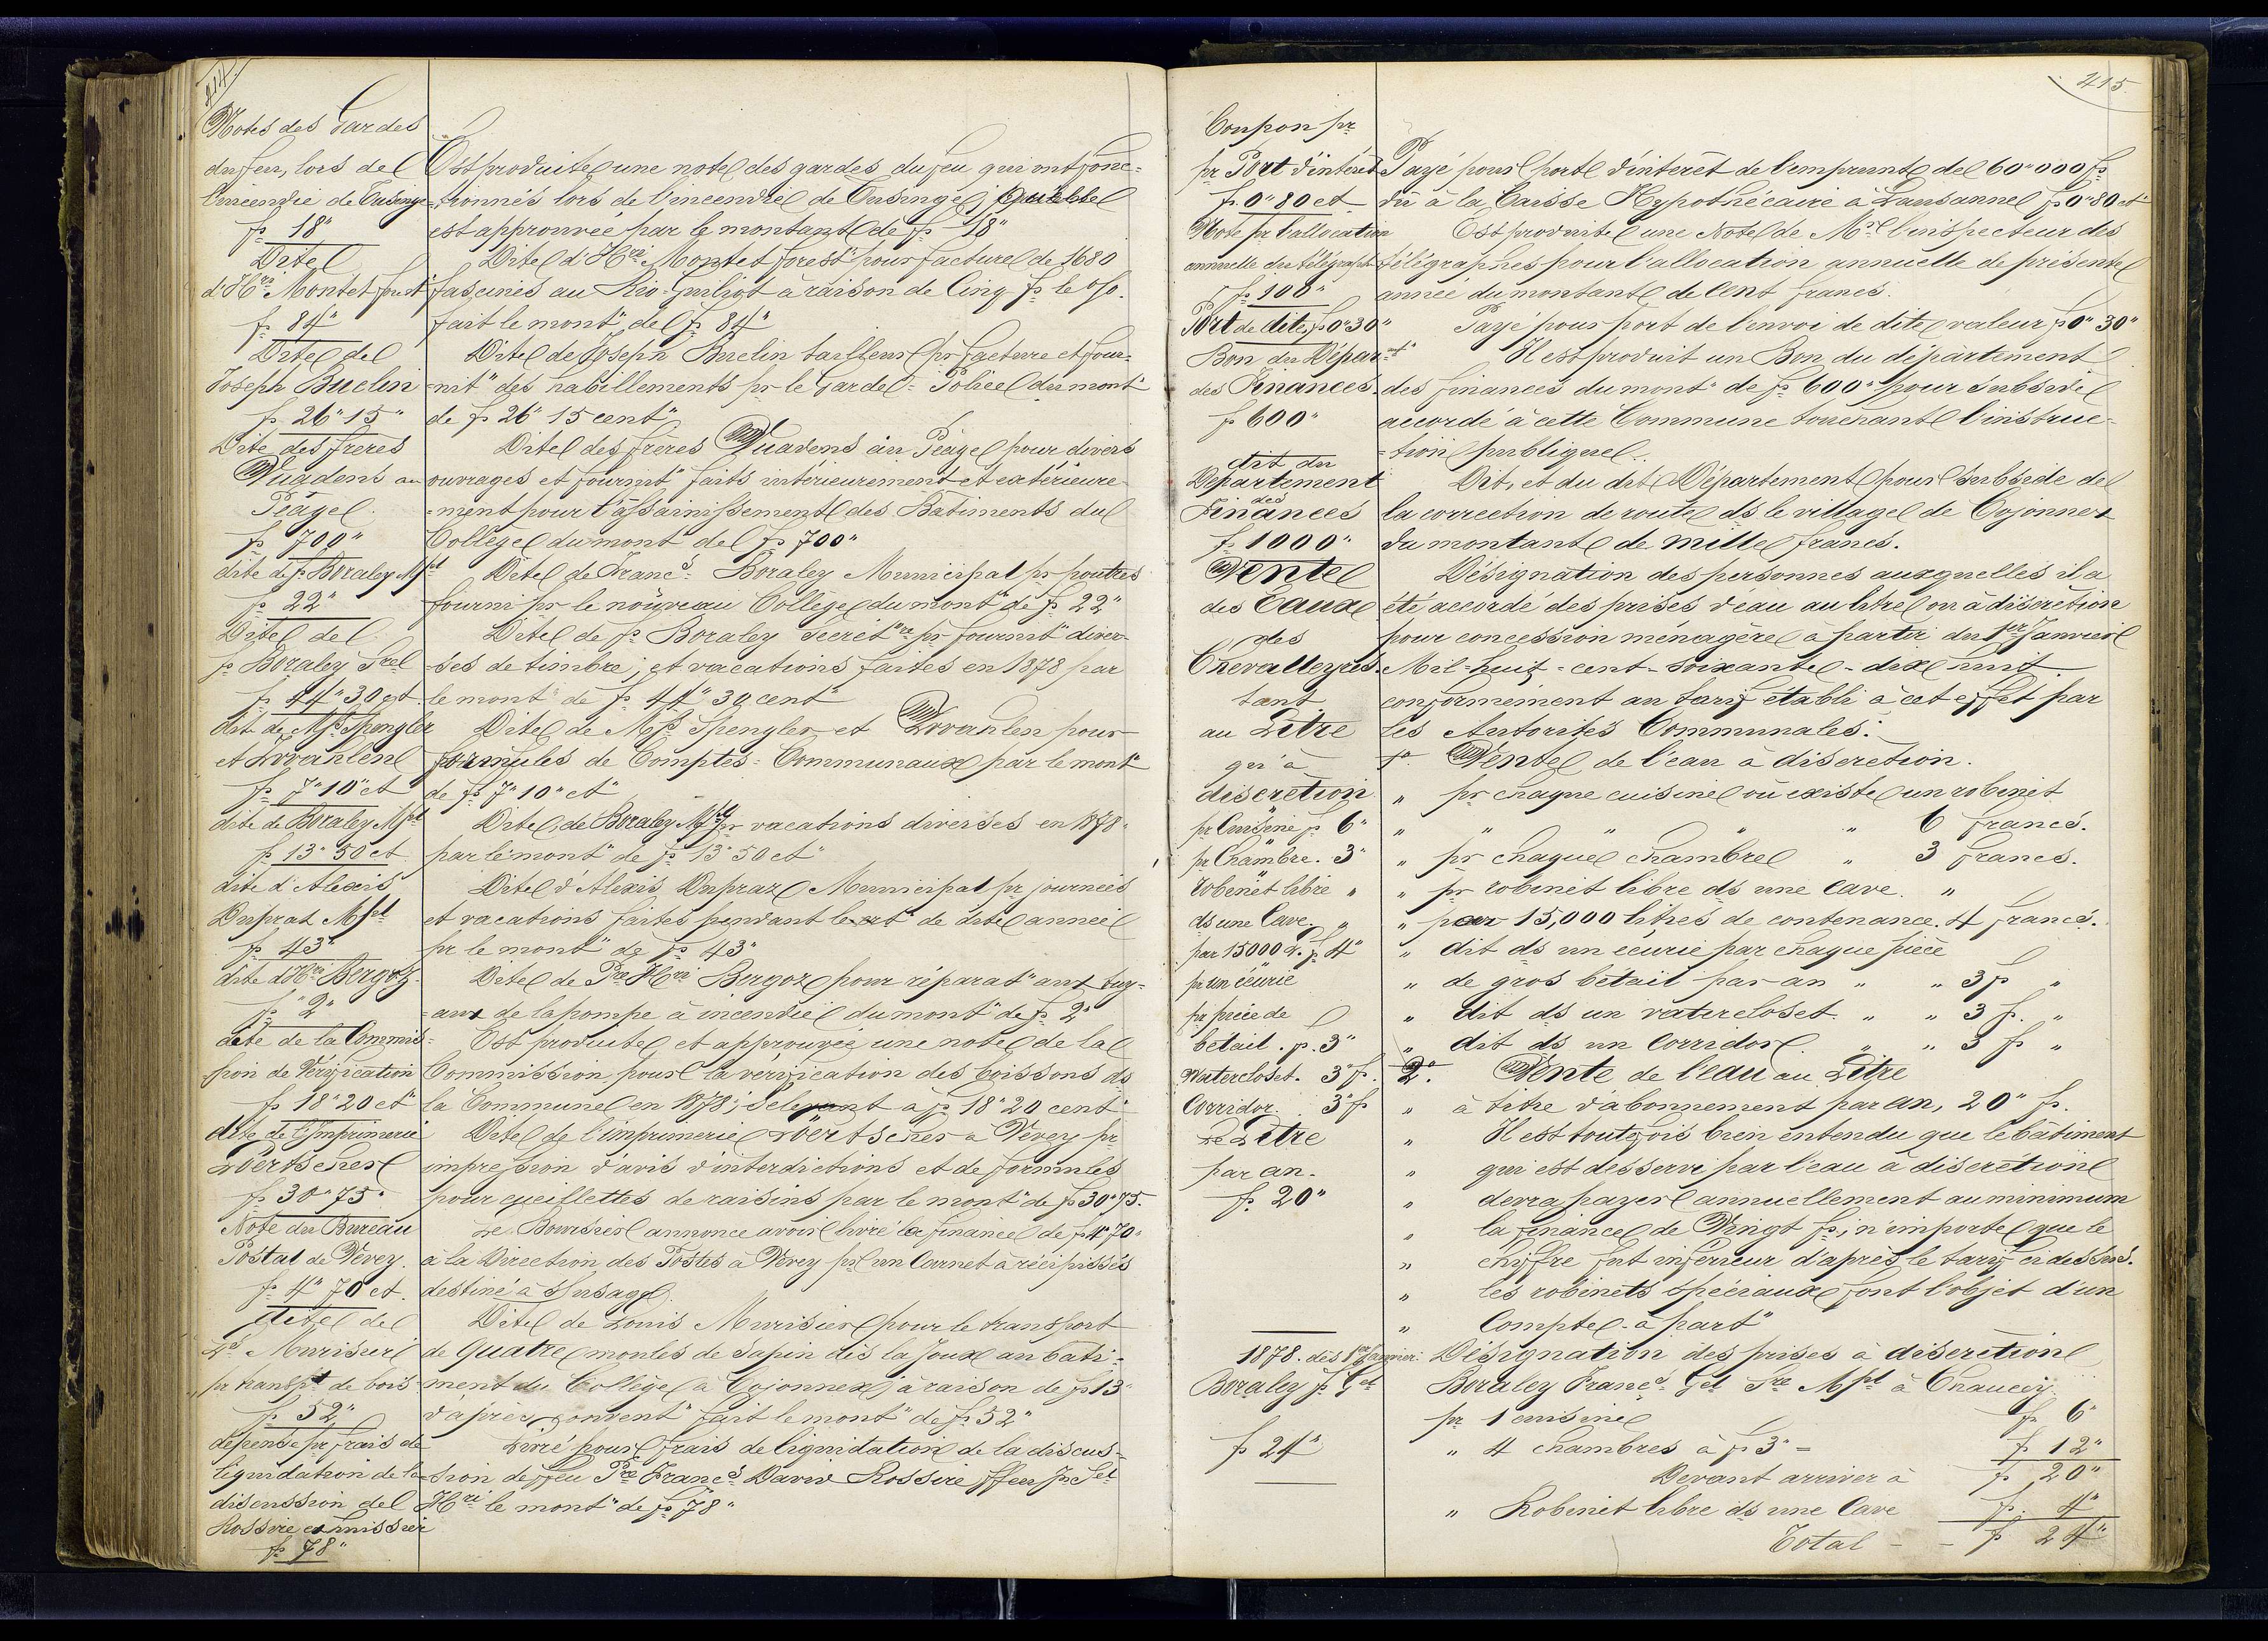 414
Notes des Gardes
du feu, lors de
l'incendie de Tusinge
fs 18"
Dite
d'Hri Montet forest
fs 84"
Dite de
Joseph Buclin
fs 26" 15"
Dite des frères
Vuadens au
Péage
fs 700"
dite de fs Boraley Mpal
fs 22"
Dite de
fs Boraley Sre
fs 44" 30 ct
dit de Mrs Spengler
fs 7" 10" ct
dite de Boraley Mpal
fs 13" 50 ct
dite d'Alexis
Dupraz Mpal
fs 43"
dite d'Hri Bergoz
fs "2"
dite de la Commis=
sion de Vérification
fs 18" 20 ct"
dite de l'Imprimerie
Lœrtscher
fs 30" 75"
Note du Bureau
Postal de Vevey
fs 4" 70 ct.
dite de
Ls Murisier
pr transpt de bois
fs 52"
dépense pr frais de
liquidation de la
discussion de
Rossire
fs 78"
Est produite une note des gardes du feu qui ont fonc=
=tionnés lors de l'incendie de Tusinge; laquelle
est approuvée par le montant de fs 18"
Dite d'Hri Montet forest" pour facture de 1680
fascines au à raison de Cinq fs le %.
fait le mont" de fs 84"
Dite de Joseph Buclin tailleur pr facture et four=
=nit" des habillements pr le Garde=Police du mont"
de fs 26" 15 cent"
Dite des frères Vuadens au Péage pour divers
ouvrages et fournit" faits intérieurement et extérieure
=ment pour l'assainissement des Bâtiments du
Collège du mont" de fs 700"
Dite de Francs Boraley Municipal pr poutres
fourni pr le nouveau Collège du mont" de fs 22"
Dite de fs Boraley Secrét"re pr fournit" diver=
=ses de timbre; et vacations faites en 1878 par
le mont" de fs 44" 30 cent"
Dite de Mrs Spengler et pour
formules de Comptes=Communaux par le mont"
de fs 7" 10" ct"
Dite, de Boraley Mpal pr vacations diverses en 1878"
par le mont" de fs 13" 50 ct"
Dite d'Alexis Dupraz Municipal pr journées
et vacations faites pendant le de dite année
pr le mont" de fs 43"
Dite de Pre Hri Bergoz pour réparat" aux tuy=
=aux de la pompe à incendie du mont" de fs 2"
Est produite et approuvée une note de la
Commission pour la vérification des boissons ds
la Commune en 1878; s'élevant à fs 18" 20 cent"
Dite de l'imprimerie Lœrtscher à Vevey pr
impression d'avis d'interdictions et de formules
pour cueillettes de raisins par le mont" de fs 30" 75.
Le Boursier annonce avoir livré la finance de fs 4" 70"
à la Direction des Postes à Vevey pr un Carnet à récipissés
destiné à s/usage
Dite de Louis Murisier pour le transport
de quatre moules de Sapin dès la Joux au bâti=
=ment du Collège à Cojonnex à raison de fs 13"
d'après convent" fait le mont" de fs 52"
Livré pour frais de liquidation de la discus=
=sion de ffeu Pre Francs David Rossire ffeu Jn Sel
Hri le mont" de fs 78"
415
Coupon pr
pr Port d'intérêt
fs 0" 80 ct
Note pr l'allocation
annuelle du télégraphe
fs 100"
Port de dite fs 0" 30"
Bon du Départ"
des Finances
fs 600"
dit du
Département
des
Finances
fs 1000"
Vente
des Eaux
des
Chevalleyres
tant
au Litre
qu'à
discrétion
pr Cuisine fs 6"
pr Chambre. 3"
robinet libre "
ds une Cave. "
par 15000 L. fs 4"
pr un écurie
pr pièce de
bétail. p. 3"
Watercloset. 3" fs.
Corridor. 3" fs
Le Litre
par an.
fs 20"
1878. dès 1er Janvier:
Boraley fs Gel
fs 24"
Payé pour port d'intérêt de l'emprunt de 60"000 fs
dû à la Caisse Hypothécaire à Lausanne fs 0" 80 ct"
Est produite une Note de Mr l'inspecteur des
télégraphes pour l'allocation annuelle de présente
année du montant de Cent francs.
Payé pour port de l'envoi de dite valeur fs 0" 30"
Il est produit un Bon du département
des finances du mont" de fs 600" pour subside
accordé à cette Commune concernant l'instruc=
=tion publique.
Dit, et du dit Département pour Subside de
la correction de route ds le village de Cojonnex
du montant de mille francs.
Désignation des personnes auxquelles il a
été accordé des prises d'eau au litre ou à discrétion
pour concession ménagère à partir du 1er Janvier
Mil=huit=cent=soixante=dix huit
conformément au tarif établi à cet effet par
les Autorités Communales:
1o Vente de l'eau à discrétion.
" pr chaque cuisine où existe un robinet
" " " " " 6 francs.
" pr chaque chambre " 3 francs.
" pr robinet libre ds une cave. "
" par 15,000 litres de contenance. 4 francs.
" dit ds un écurie par chaque pièce
" de gros bétail par an " " 3 fs "
" dit ds un watercloset. " " 3 fs. "
" dit ds un Corridor. " " 3 fs "
2o. Vente de l'eau au Litre
" à titre d'abonnement par an, 20" fs.
" Il est toutefois bien entendu que le bâtiment
" qui est desservi par l'eau à discrétion
" devra payer annuellement au minimum
" la finance de Vingt fs; n'importe que le
" chiffre fut inférieur d'après le tarif ci dessus.
" les robinets spéciaux font l'objet d'un
" Compte-à part"
Désignation des prises à discrétion
Boraley Francs Gel Sre Mpal à Chaucey
pr 1 cuisine fs 6"
" 4 chambres à fs 3" = fs 12"
Devant arriver à fs 20"
" Robinet libre ds une Cave fs. 4"
Total - - fs 24"